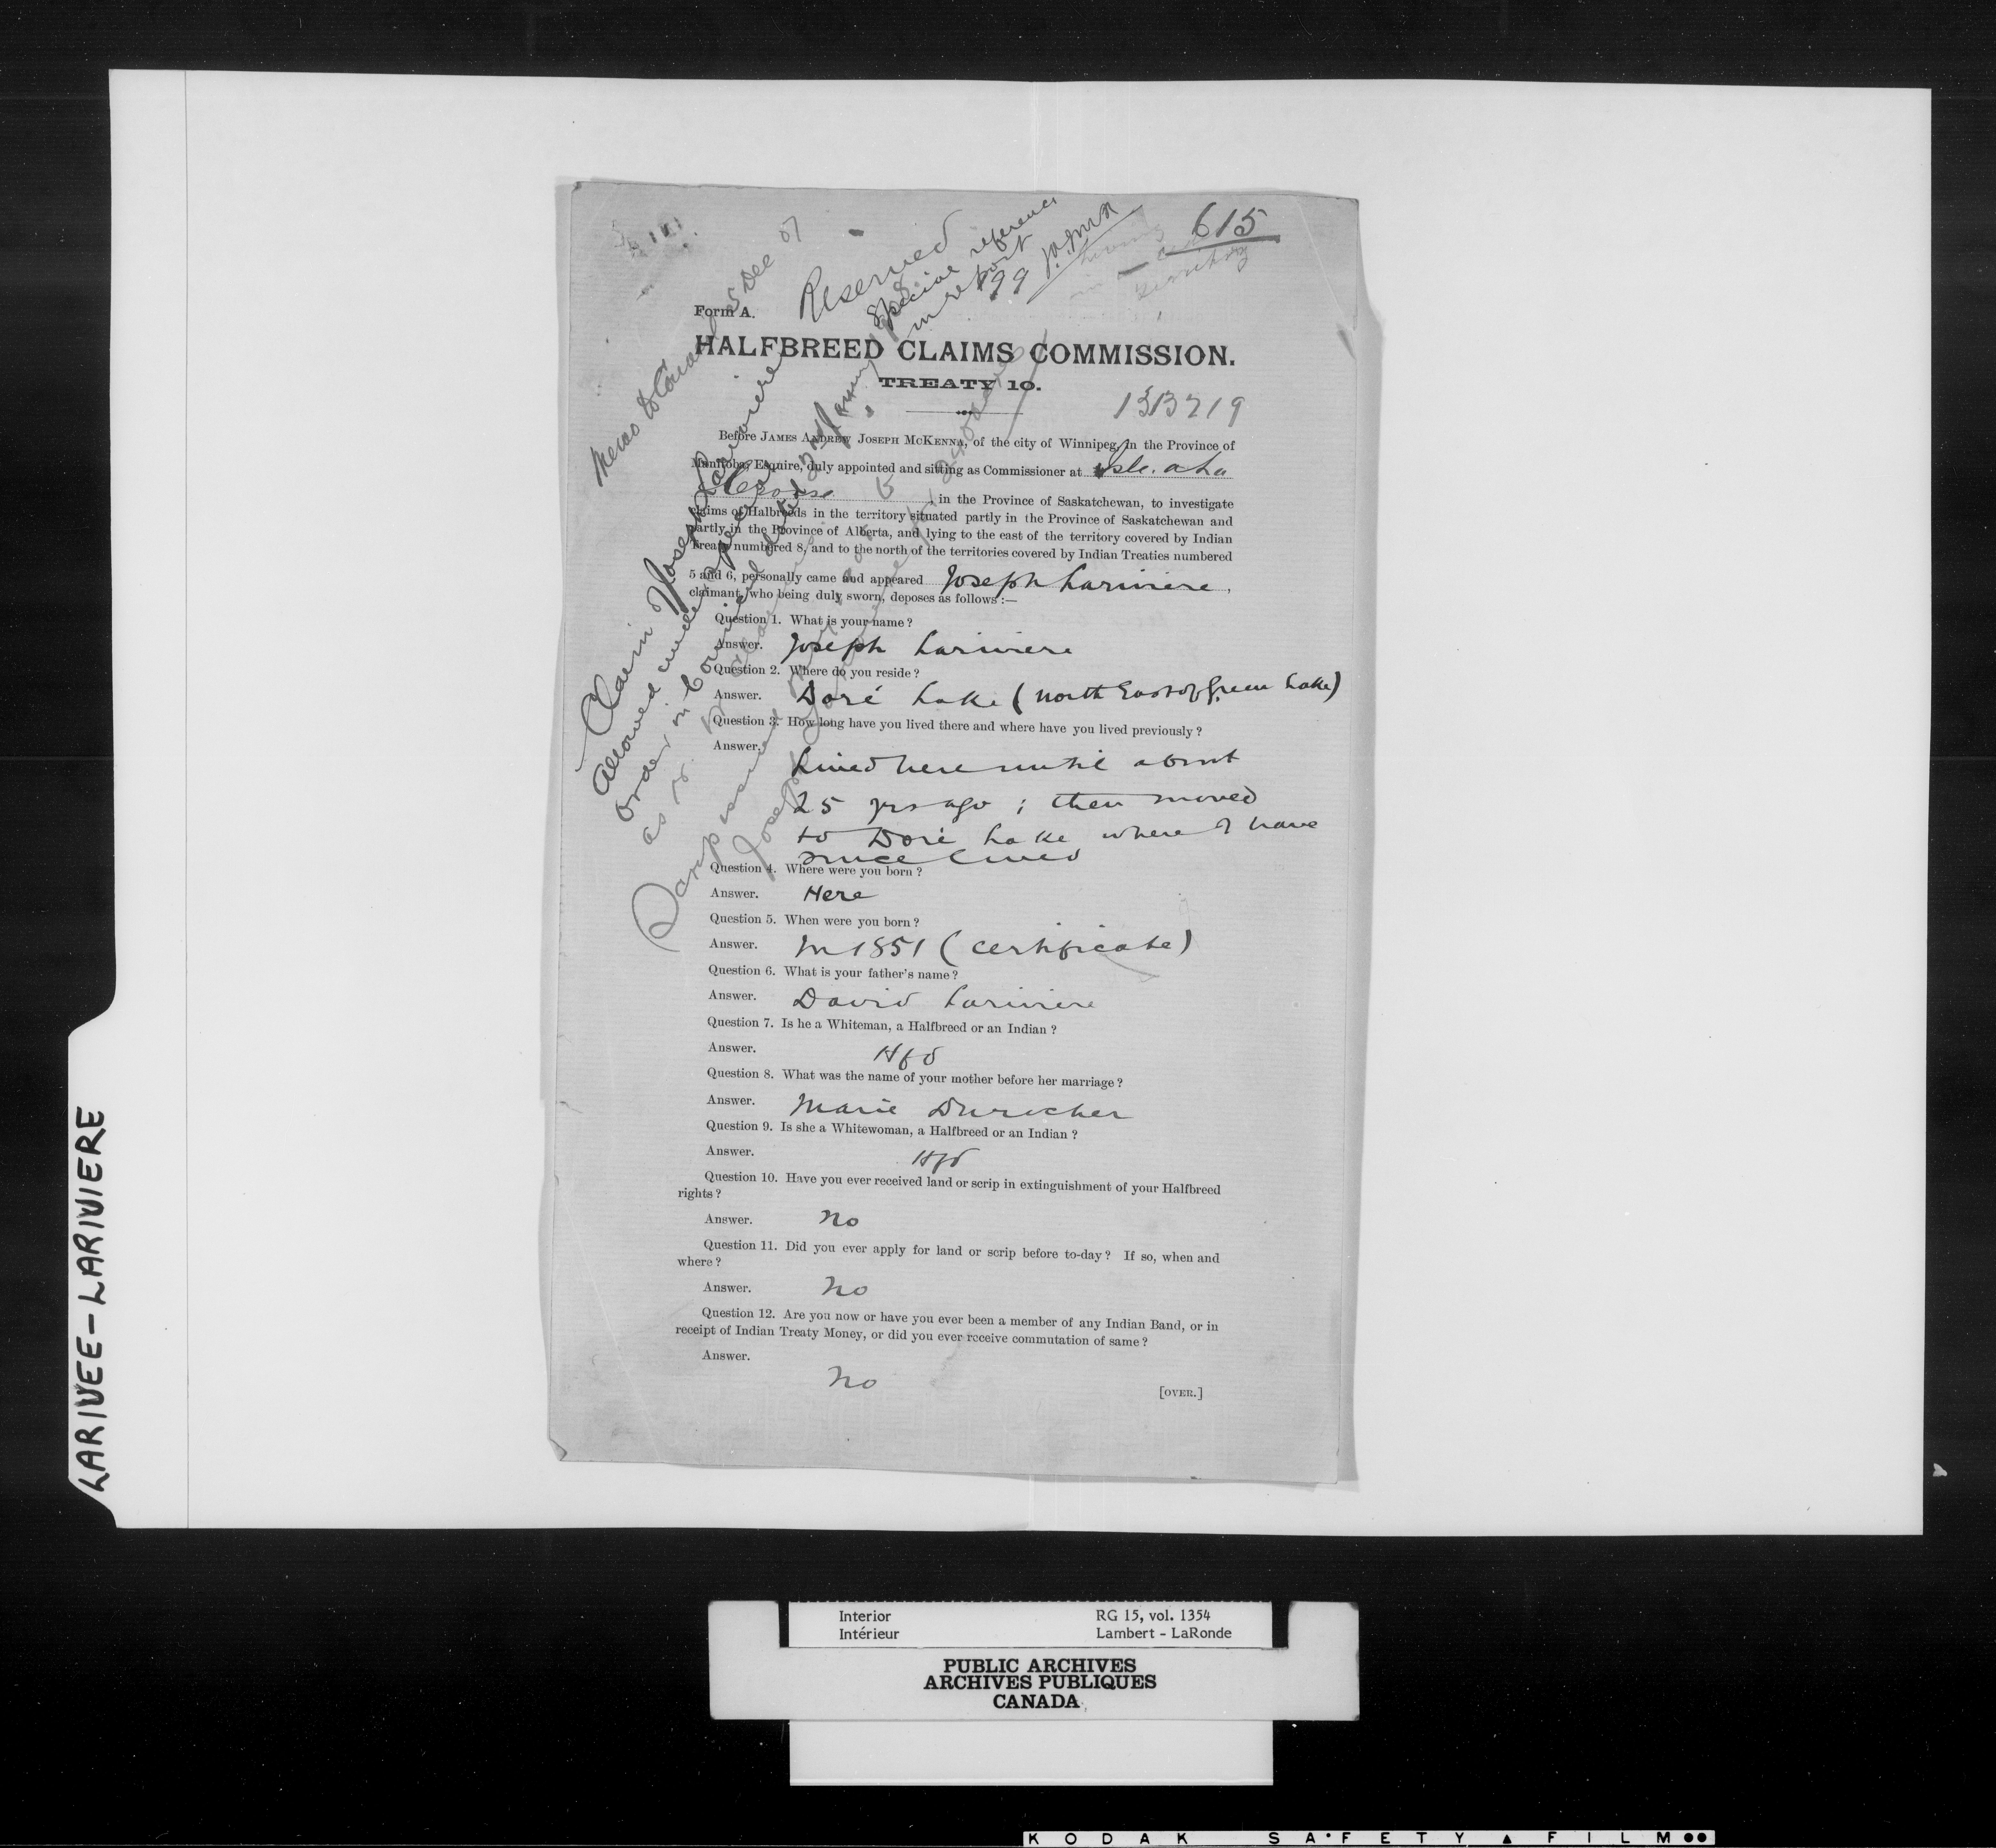 615
Reserved
Special reference
in report
P 99 J.A.McK
Memo to Council 5 Dec 07
Form A.
HALFBREED CLAIMS COMMISSION.
TREATY 10.
Before JAMES ANDREW JOSEPH MCKENNA, of the city of Winnipeg, in the Province of
Manitoba, Esquire, duly appointed and sitting as Commissioner at Isle. a la
Crosse, in the Province of Saskatchewan, to investigate
claims of Halbreeds in the territory situated partly in the Province of Saskatchewan and
partly in the Province of Alberta, and lying to the east of the territory covered by Indian
Treaty numbered 8, and to the north of the territories covered by Indian Treaties numbered
5 and 6, personally came and appeared Joseph Lariviere,
claimant, who being duly sworn, deposes as follows:—
Question 1. What is your name?
Answer. Joseph Lariviere
Question 2. Where do you reside?
Answer. Doré Lake (North East of Green Lake)
Question 3. How long have you lived there and where have you lived previously?
Answer. Lived here until about
25 yrs ago; then moved
to Doré Lake where I have
since lived
Question 4. Where were you born?
Answer. Here
Question 5. When were you born?
Answer. In 1851 (certificate)
Question 6. What is your father's name?
Answer. David Lariviere
Question 7. Is he a Whiteman, a Halfbreed or an Indian?
Answer. Hfd
Question 8. What was the name of your mother before her marriage?
Answer. Marie Durocher
Question 9. Is she a Whitewoman, a Halfbreed or an Indian?
Answer. Hfd
Question 10. Have you ever received land or scrip in extinguishment of your Halfbreed
rights?
Answer. No
Question 11. Did you ever apply for land or scrip before to-day? If so, when and
where?
Answer. No
Question 12. Are you now or have you ever been a member of any Indian Band, or in
receipt of Indian Treaty Money, or did you ever receive commutation of same?
Answer.
No
[OVER.]
Claim Joseph Lariviere
allowed under
Order in Council dated
LARIVEE-LARIVIERE
Interior RG 15, vol. 1354
Intérieur Lambert - LaRonde
PUBLIC ARCHIVES
ARCHIVES PUBLIQUES
CANADA
KODAK SA•FETY ▲ FILM ●●